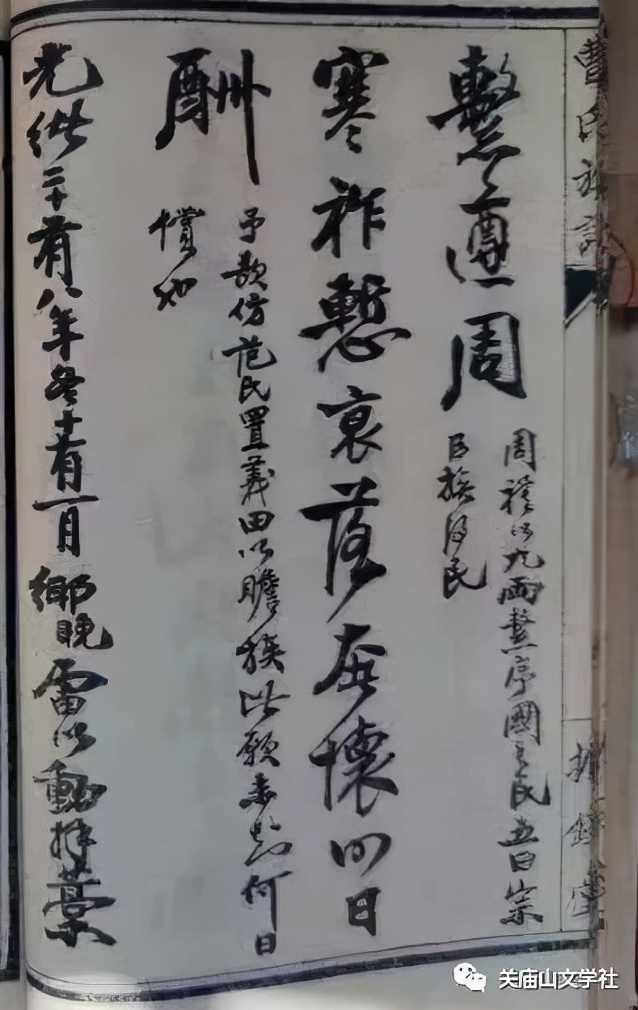 曹氏族譜
繫遵周
周禮以九兩繫邦國之民五曰宗
以族得民
寒祚慙衰落懷何日
酬
予欲仿范氏置義田以贍族此願未知何日
償也
光緒二十有八年冬十有一月鄉晚雷以動拜藁
关庙山文学社